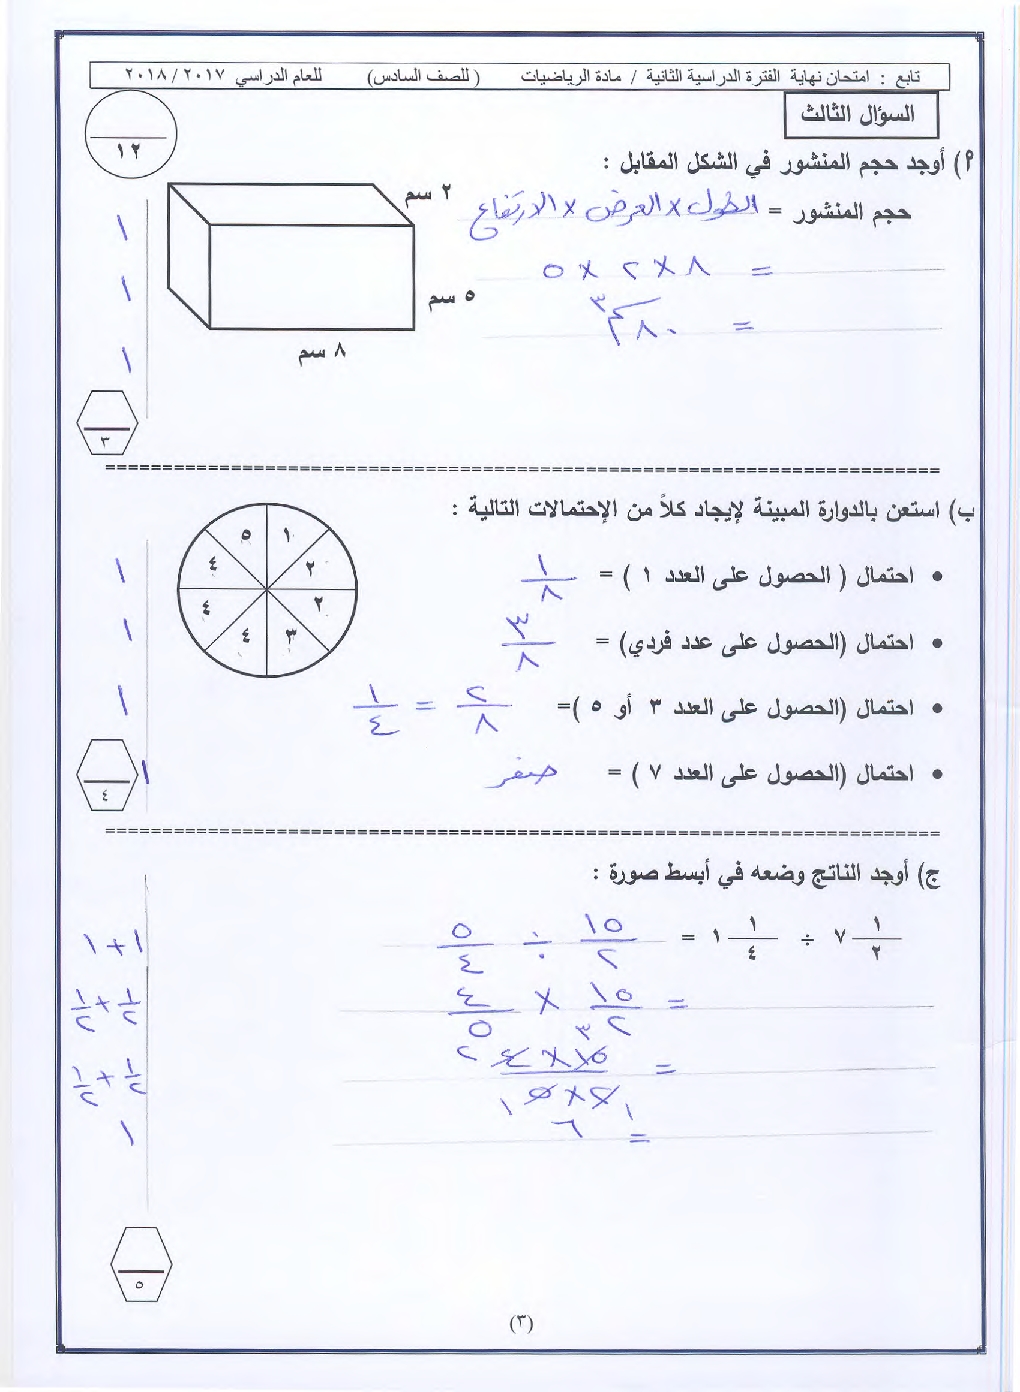 تابع : امتحان نهاية الفترة الدراسية الثانية / مادة الرياضيات ( للصف السادس) للعام الدراسي ٢٠١٧ / ٢٠١٨
السؤال الثالث
١٢
٩) أوجد حجم المنشور في الشكل المقابل :
حجم المنشور = الطول × العرض × الارتفاع
= ٨ × ٢ × ٥
= ٨٠ سم٣
٢ سم
٥ سم
٨ سم
١
١
١
٣
ب) استعن بالدوارة المبينة لإيجاد كلاً من الإحتمالات التالية :
١ ٢ ٢ ٣ ٤ ٤ ٤ ٥
• احتمال ( الحصول على العدد ١ ) = ١/٨
• احتمال (الحصول على عدد فردي) = ٣/٨
• احتمال (الحصول على العدد ٣ أو ٥ )= ٢/٨ = ١/٤
• احتمال (الحصول على العدد ٧ ) = صفر
١
١
١
١
٤
ج) أوجد الناتج وضعه في أبسط صورة :
٧ ١/٢ ÷ ١ ١/٤ = ١٥/٢ ÷ ٥/٤
= ١٥/٢ × ٤/٥
= ٣ ١٥ × ٤ ٢ / ١ ٢ × ٥ ١
= ٦
١ + ١
١/٢ + ١/٢
١/٢ + ١/٢
١
٥
(٣)